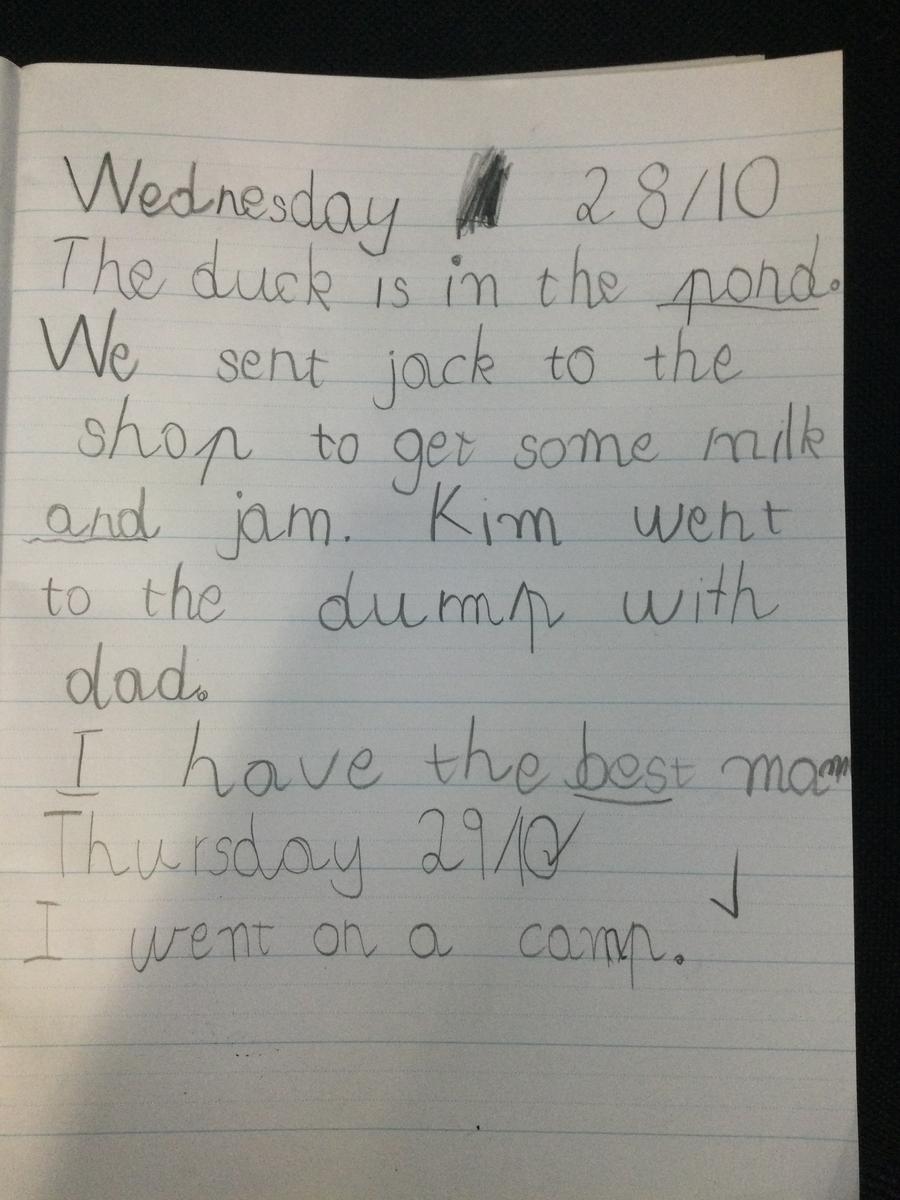 Wednesday 28/10
The duck is in the pond.
We sent jack to the
shop to get some milk
and jam. Kim went
to the dump with
dad.
I have the best mam
Thursday 29/10
I went on a camp.